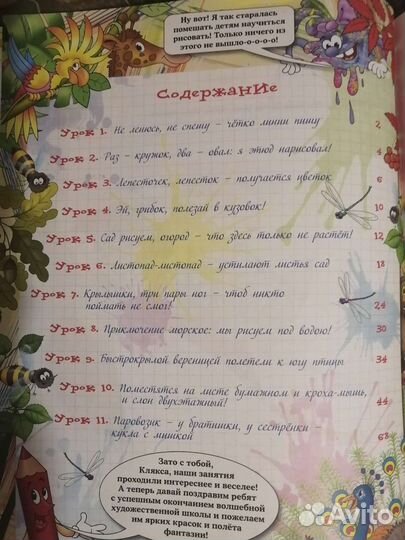 Ну вот! Я так старалась
помешать детям научиться
рисовать! Только ничего из
этого не вышло-о-о-о-о!
Содержание
Урок 1. Не ленюсь, не спешу - чётко линии пишу 2
Урок 2. Раз - кружок, два - овал: я этюд нарисовал! 4
Урок 3. Лепесточек, лепесток - получается цветок 6
Урок 4. Эй, грибок, полезай в кузовок! 10
Урок 5. Сад рисуем, огород - что здесь только не растёт! 12
Урок 6. Листопад-листопад - устилают листья сад 18
Урок 7. Крылышки, три пары ног - чтоб никто
поймать не смог! 24
Урок 8. Приключение морское: мы рисуем под водою! 30
Урок 9. Быстрокрылой вереницей полетели к югу птицы 34
Урок 10. Поместятся на листе бумажном и кроха-мышь,
и слон двухэтажный! 44
Урок 11. Паровозик - у братишки, у сестрёнки -
кукла с мишкой 68
Зато с тобой,
Клякса, наши занятия
проходили интереснее и веселее!
А теперь давай поздравим ребят
с успешным окончанием волшебной
художественной школы и пожелаем
им ярких красок и полёта
фантазии!
Avito